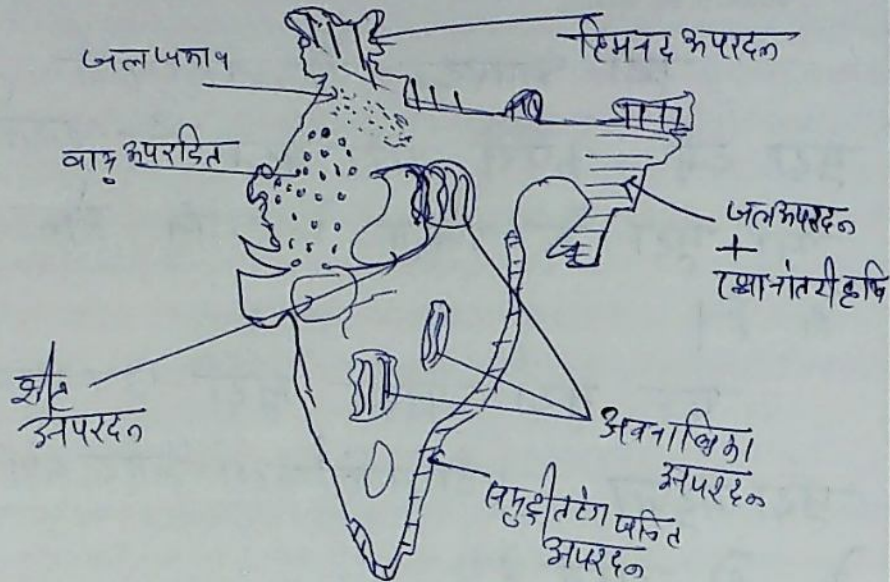 हिमनद अपरदन
जल जमाव
वायु अपरदित
जल अपरदन
+
स्थानांतरी कृषि
शीट
अपरदन
अवनालिका
अपरदन
समुद्री तरंग जनित
अपरदन